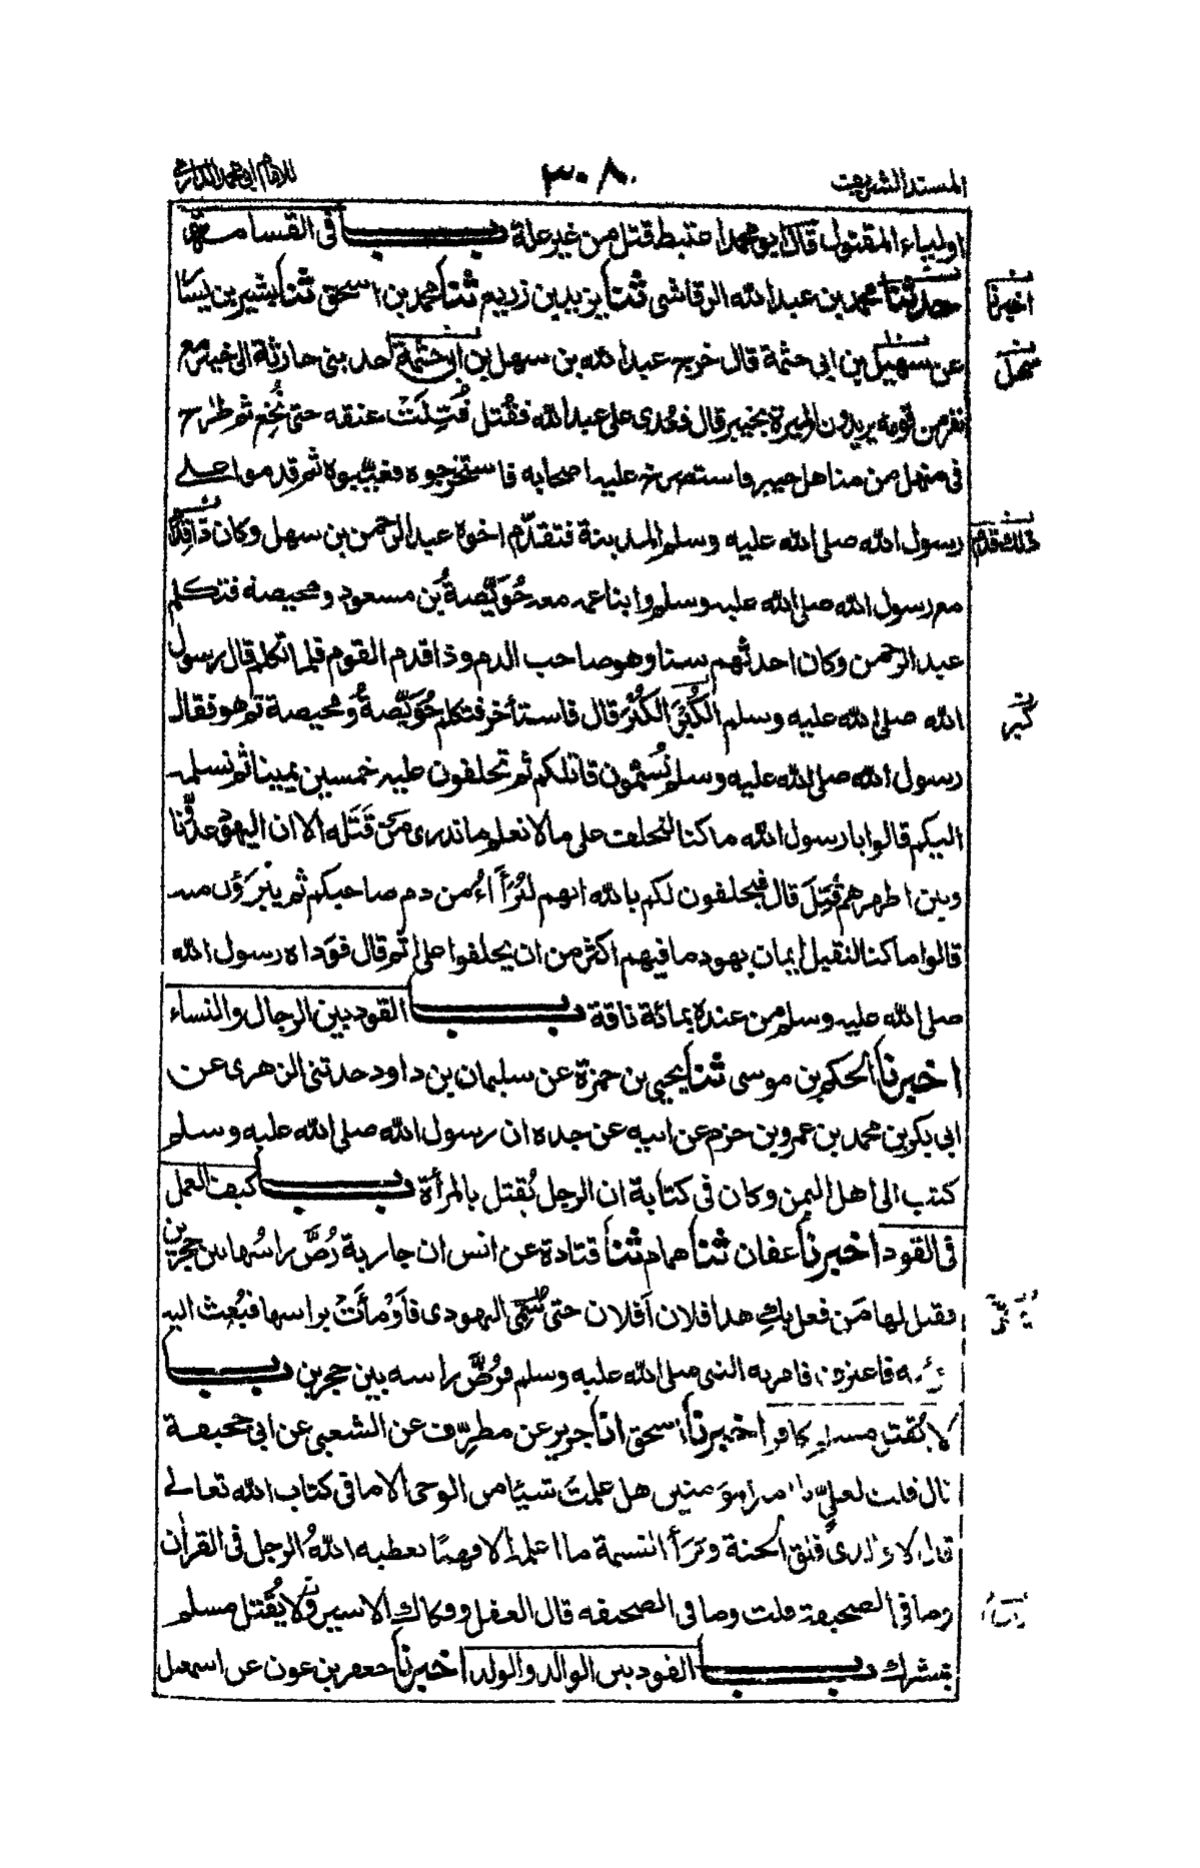 المسند الشريف ٣٠٨ للامام ابى محمد الدارمى
اولياء المقتول قال ابو محمد اعتبط قتل من غير علة باب فى القسامة
حدثنا محمد بن عبد الله الرقاشى ثنا يزيد بن زريع ثنا محمد بن اسحق ثنا بشير بن يسار
اخبرنا
عن سهيل بن ابى حثمة قال خرج عبد الله بن سهل بن ابى حثمة احد بنى حارثة الى خيبر مع
سهل
نفر من قومه يريدون الميرة بخيبر قال فعُدى على عبد الله فقُتل فُتِلَتْ عنقه حتى نُخِع ثم طُرح
فى منهل من مناهل خيبر فاستصرخ عليه اصحابه فاستخرجوه فغيّبوه ثم قدموا على
رسول الله صلى الله عليه وسلم المدينة فتقدّم اخوه عبد الرحمن بن سهل وكان ذا قِدَم
ذلك قدم
مع رسول الله صلى الله عليه وسلم وابنا عمه معه حُوَيِّصةُ بن مسعود ومحيصة فتكلم
عبد الرحمن وكان احدثهم سنا وهو صاحب الدم وذا قدم القوم فلما تكلم قال رسول
الله صلى الله عليه وسلم الكُبْرَ الكُبْرَ قال فاستأخر فتكلم حُوَيِّصةُ ومُحيصة ثم هو فقال
كبر
رسول الله صلى الله عليه وسلم تُسَمُّون قاتلكم ثم تحلفون عليه خمسين يمينا ثم نسلمه
اليكم قالوا يا رسول الله ما كنا لنحلف على ما لا نعلم ما ندرى مَن قَتَلَه الا ان اليهود عدوُّنا
وبين اظهرهم قُتِلَ قال فيحلفون لكم بالله انهم لبُرَأَاءُ من دم صاحبكم ثم يَبْرَؤن منه
قالوا ما كنا لنقبل ايمان يهود ما فيهم اكثر من ان يحلفوا على اثم قال فوَداه رسول الله
صلى الله عليه وسلم من عنده بمائة ناقة باب القود بين الرجال والنساء
اخبرنا الحكم بن موسى ثنا يحيى بن حمزة عن سليمان بن داود حدثنى الزهرى عن
ابى بكر بن محمد بن عمرو بن حزم عن ابيه عن جده ان رسول الله صلى الله عليه وسلم
كتب الى اهل اليمن وكان فى كتابه ان الرجل يُقتل بالمرأة باب كيف العمل
فى القود اخبرنا عفان ثنا همام ثنا قتادة عن انس ان جارية رُضَّ راسُها بين حجرين
فقيل لها مَن فعل بكِ هذا فلان أفلان حتى سُمِّى اليهودى فاَوْمأَتْ براسها فبُعِث اليه
به فاعترف فامر به النبى صلى الله عليه وسلم فرُضَّ راسه بين حجرين باب
لا يُقتل مسلم بكافر اخبرنا اسحق انا جرير عن مطرّف عن الشعبى عن ابى جحيفة
قال قلت لعلىّ يا امير المؤمنين هل علمتَ شيئا من الوحى الا ما فى كتاب الله تعالى
قال لا والذى فلق الحبة وبَرَأ النسمة ما اعلمه الا فهمًا يعطيه اللهُ الرجل فى القرآن
وما فى الصحيفة قلت وما فى الصحيفة قال العقل وفكاك الاسير ولا يُقتل مسلم
بمشرك باب القود بين الوالد والولد اخبرنا جعفر بن عون عن اسمعيل